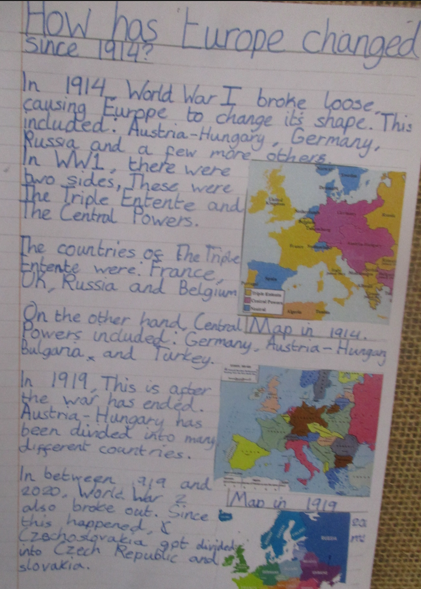 How has Europe changed
since 1914?
In 1914, World War I broke loose,
causing Europe to change its shape. This
included: Austria-Hungary, Germany,
Russia and a few more others.
In WW1, there were
two sides, These were
The Triple Entente and
The Central Powers.
The countries of the Triple
Entente were: France,
UK, Russia and Belgium
On the other hand, Central
Map in 1914.
Powers included: Germany, Austria-Hungary
Bulgaria, and Turkey.
In 1919, This is after
the war has ended.
Austria-Hungary has
been divided into many
different countries.
Map in 1919
In between 1919 and
2020, World War 2
also broke out. Since
this happened,
Czechoslovakia got divided
into Czech Republic and
slovakia.
RUSSIA